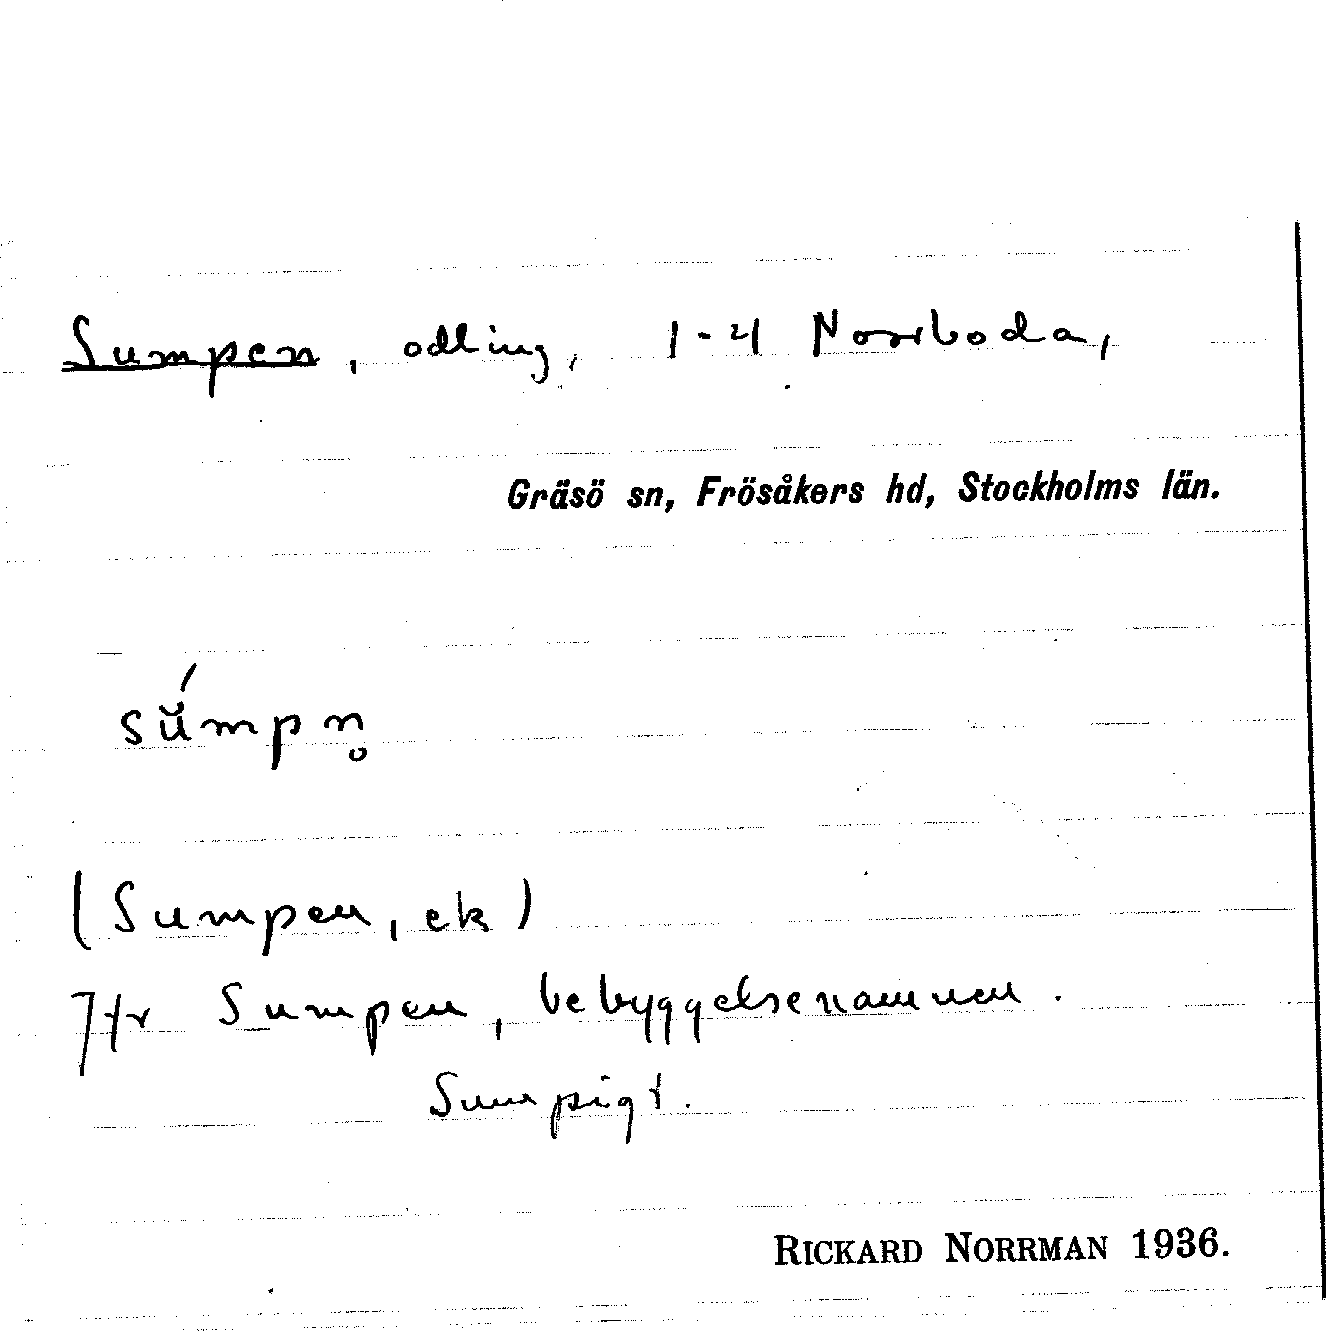 Sumpen, odling, 1-4 Norrboda,
Gräsö sn, Frösåkers hd, Stockholms län.
sŭ́mpn̥
(Sumpen, ek)
Jfr Sumpen, bebyggelsenamnen.
Sumpigt.
RICKARD NORRMAN 1936.